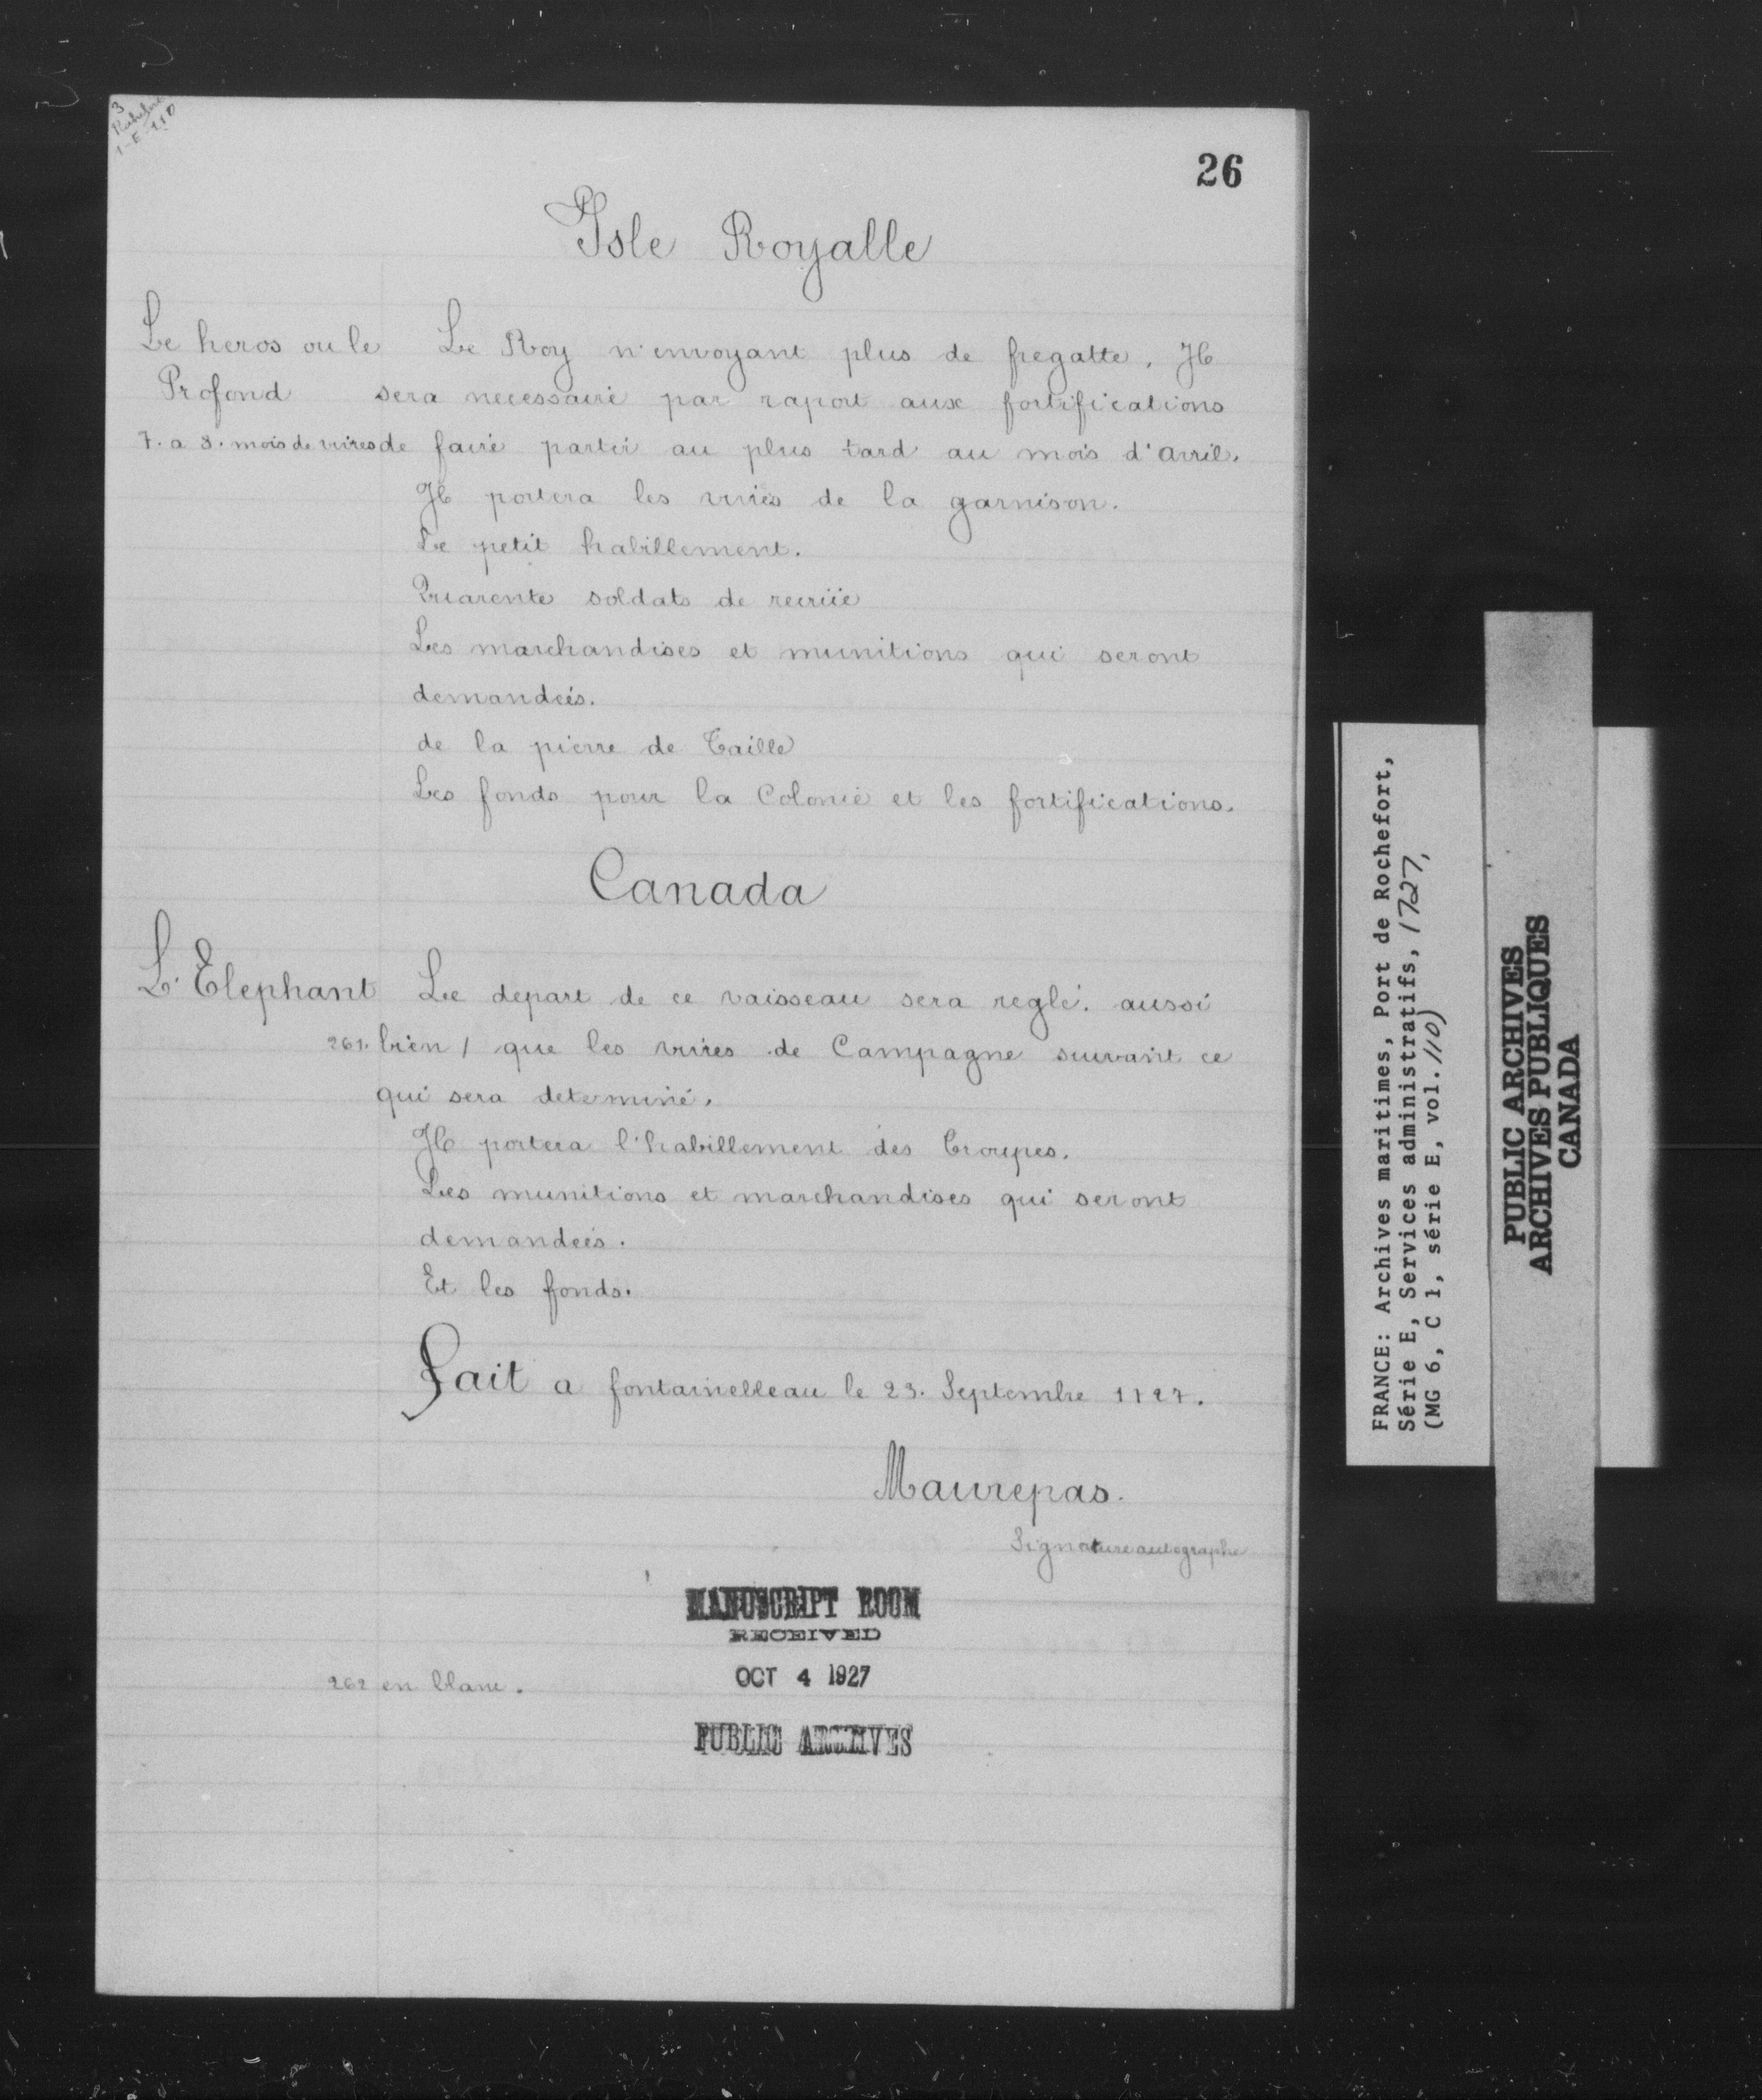 3
Rochefort
1-E-110
26
Isle Royalle
Le heros ou le
Profond
7. a 8. mois de vivres
Le Roy n'envoyant plus de fregatte, Il
sera necessaire par raport aux fortifications
de faire partir au plus tard au mois d'avril.
Il portera les vivres de la garnison.
Le petit habillement.
Quarente soldats de recrüe
Les marchandises et munitions qui seront
demandées.
de la pierre de Taille
Les fonds pour la Colonie et les fortifications.
Canada
L'Elephant
Le depart de ce vaisseau sera reglé. aussi
261. bien / que les vivres de Campagne suivant ce
qui sera determiné.
Il portera l'habillement des Troupes.
Les munitions et marchandises qui seront
demandées.
Et les fonds.
Fait a fontainebleau le 23. Septembre 1727.
Maurepas.
Signature autographe
MANUSCRIPT ROOM
RECEIVED
OCT 4 1927
PUBLIC ARCHIVES
262 en blanc.
FRANCE: Archives maritimes, Port de Rochefort,
Série E, Services administratifs, 1727,
(MG 6, C 1, série E, vol. 110)
PUBLIC ARCHIVES
ARCHIVES PUBLIQUES
CANADA